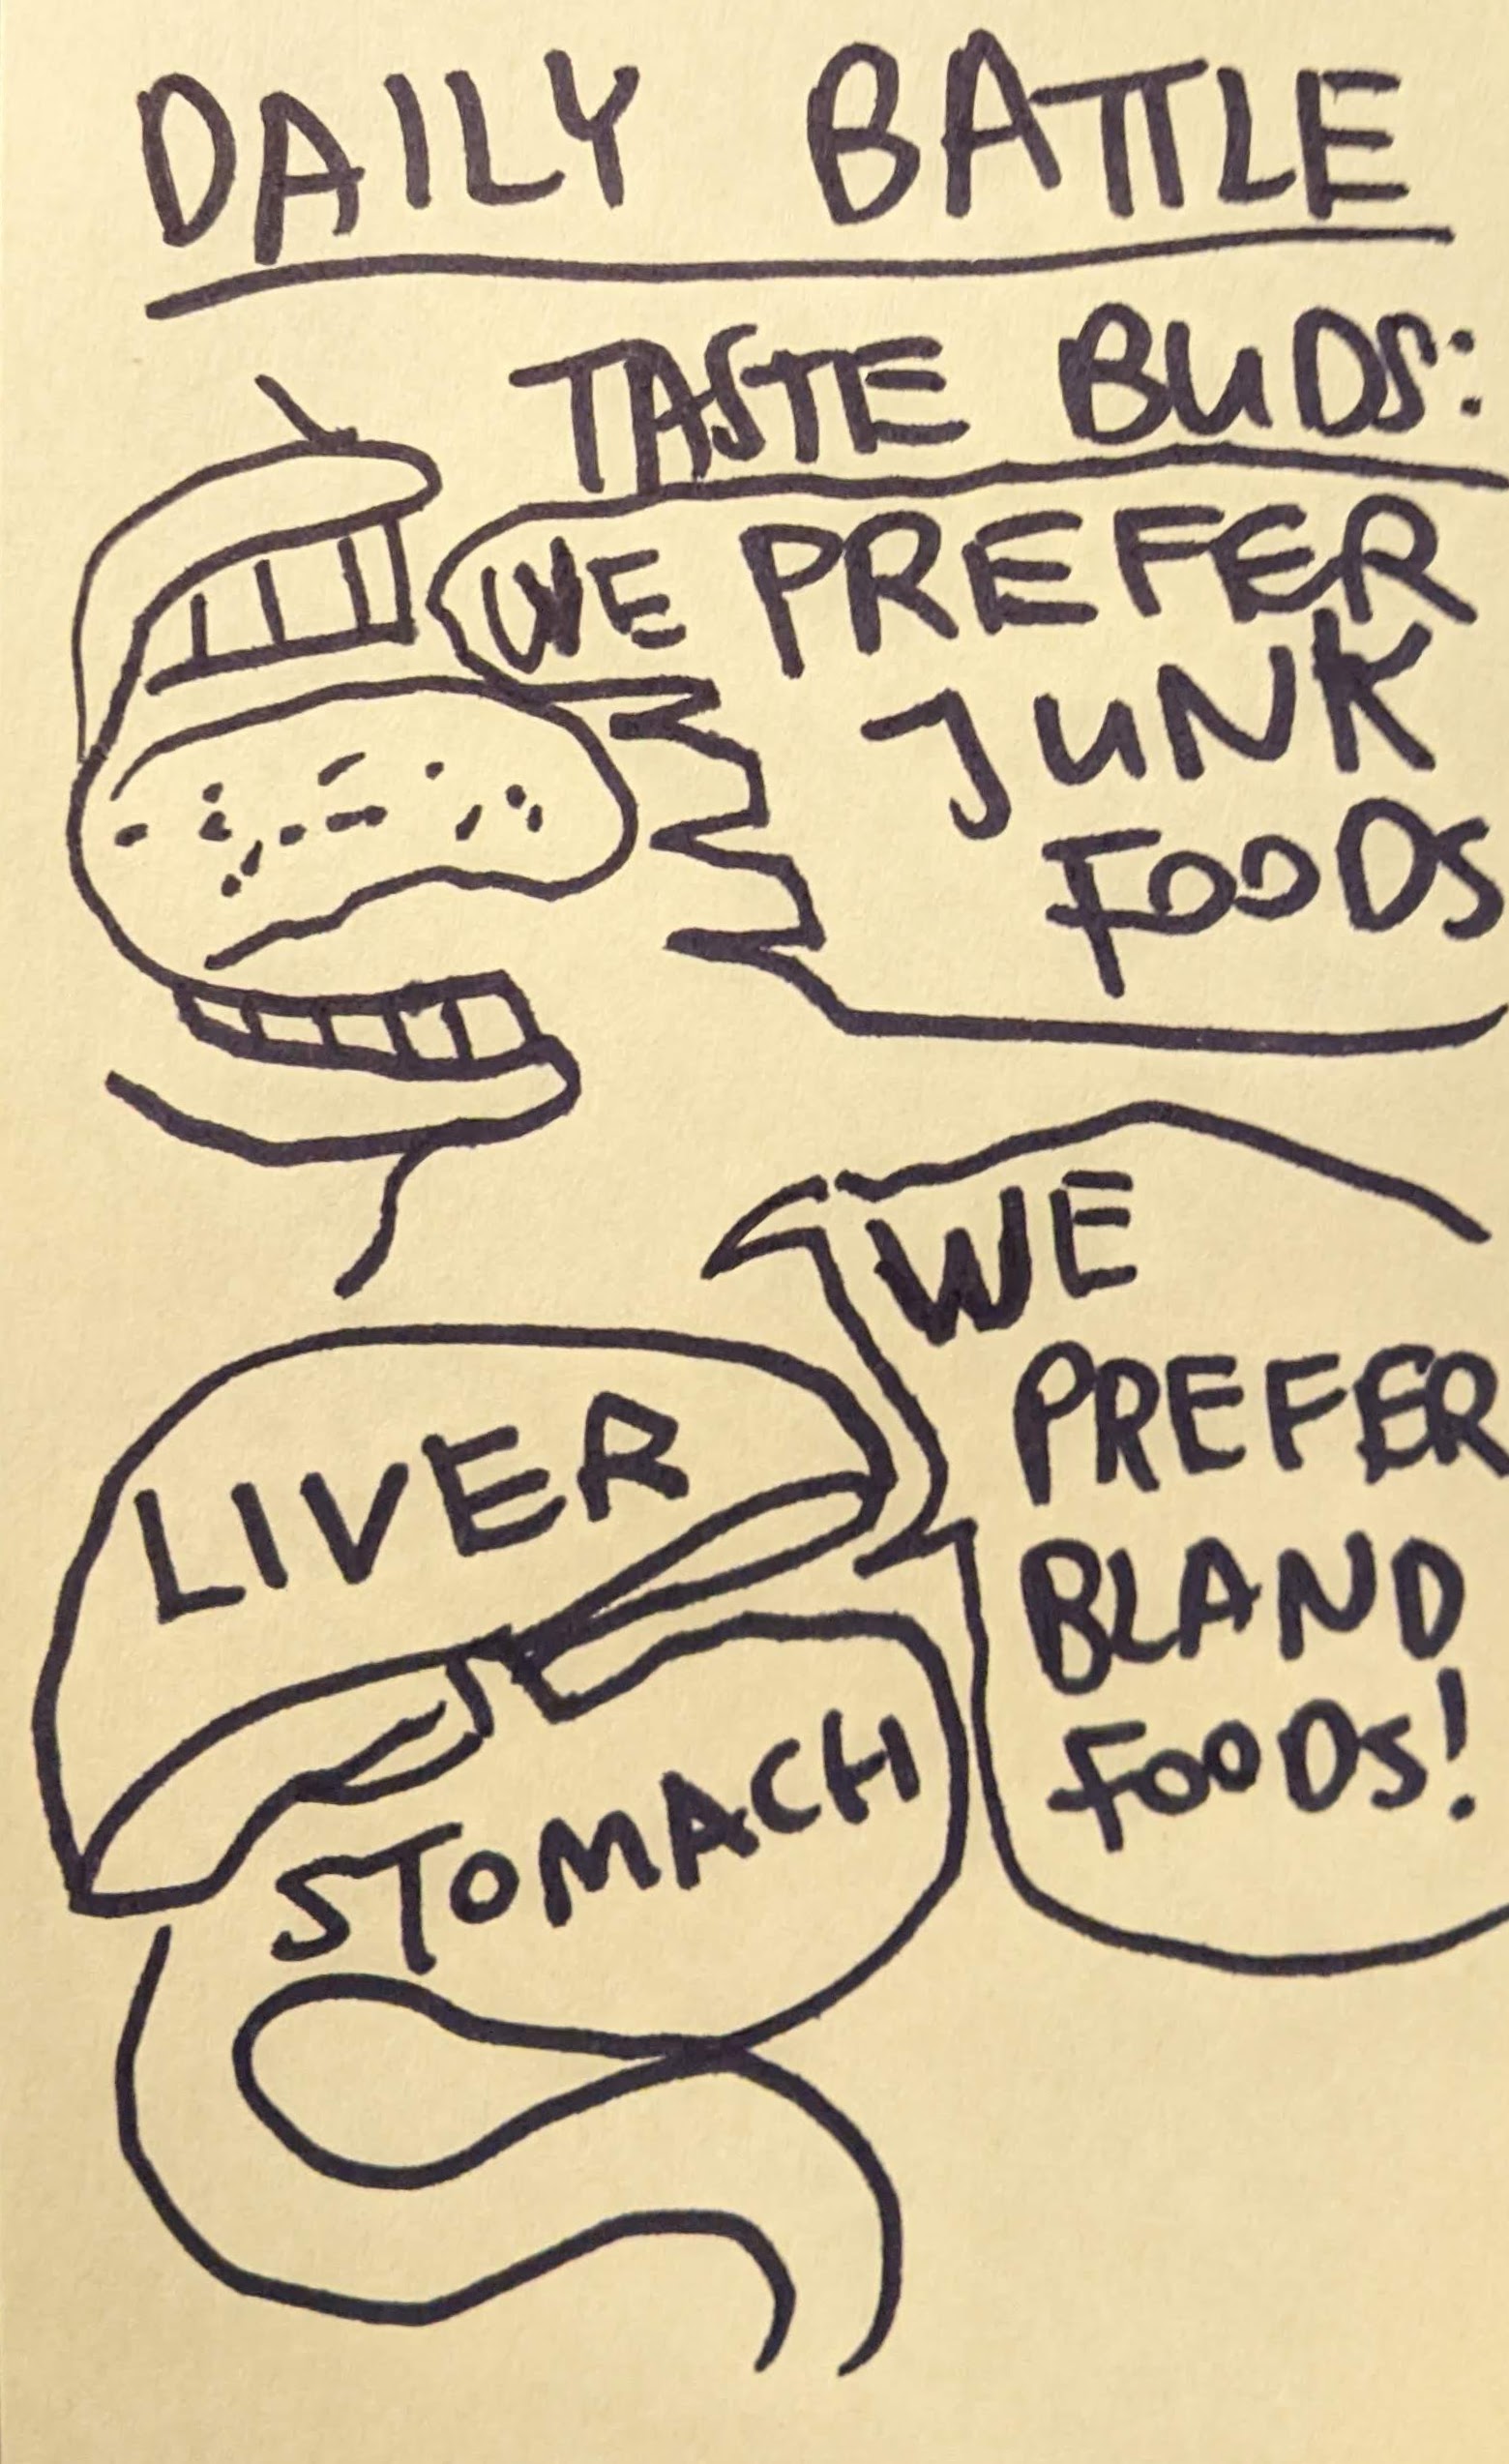 DAILY BATTLE
TASTE BUDS:
WE PREFER
JUNK
FOODS
WE
PREFER
BLAND
FOODS!
LIVER
STOMACH